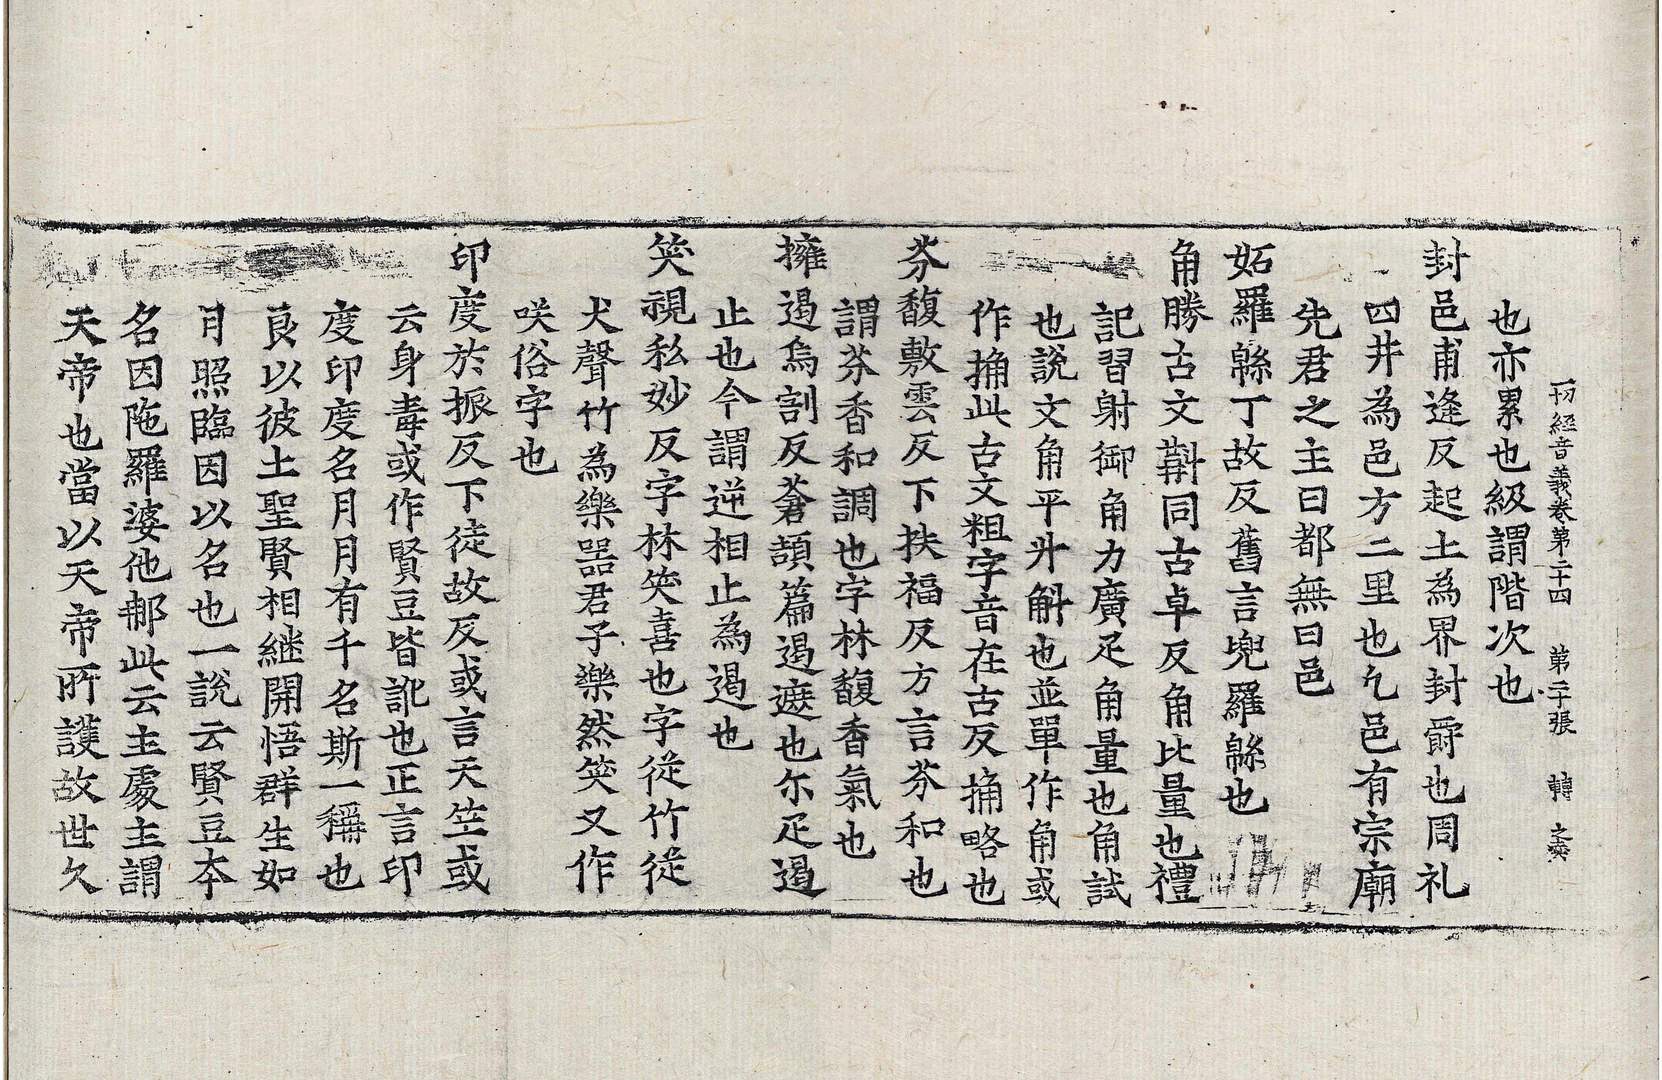 一切經音義卷第二十四 第二十張 轉 之奭
也亦累也級謂階次也
封邑甫逢反起土為界封爵也周礼
四井為邑方二里也凡邑有宗廟
先君之主曰都無曰邑
妬羅緜丁故反舊言兜羅緜也
角勝古文斠同古卓反角比量也禮
記習射御角力廣疋角量也角試
也說文角平升斛也並單作角或
作捔此古文粗字音在古反捔略也
芬馥敷雲反下扶福反方言芬和也
謂芬香和調也字林馥香氣也
擁遏烏割反蒼頡篇遏遮也尓疋遏
止也今謂逆相止為遏也
笶視私妙反字林笶喜也字従竹従
犬聲竹為樂器君子樂然笶又作
咲俗字也
印度於振反下徒故反或言天竺或
云身毒或作賢豆皆訛也正言印
度印度名月月有千名斯一稱也
良以彼土聖賢相継開悟群生如
月照臨因以名也一說云賢豆夲
名因陁羅婆他那此云主處主謂
天帝也當以天帝所護故世久